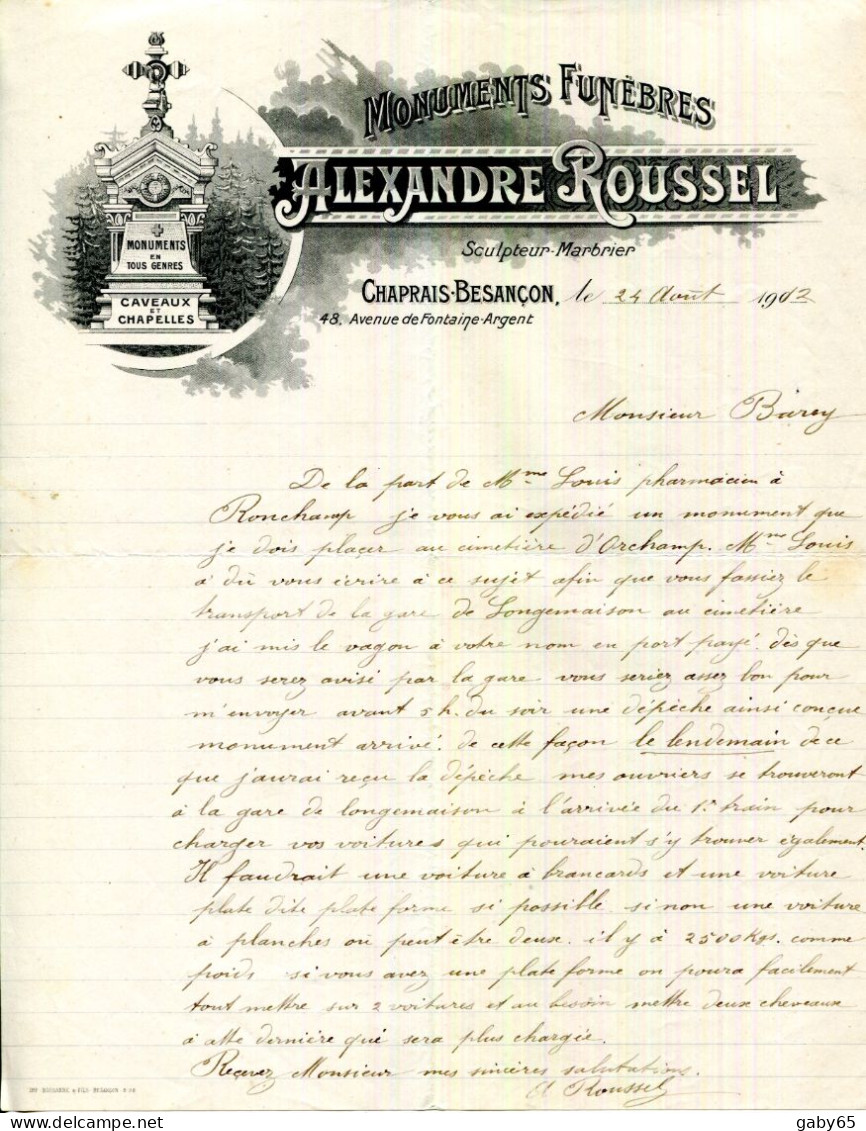 MONUMENTS FUNÈBRES
ALEXANDRE ROUSSEL
Sculpteur-Marbrier
MONUMENTS
EN
TOUS GENRES
CAVEAUX
ET
CHAPELLES
CHAPRAIS-BESANÇON, le 24 Août 1902
48, Avenue de Fontaine-Argent
Monsieur Barey
De la part de Mme Louis pharmacien à
Ronchamp je vous ai expédié un monument que
je dois plaçer au cimetière d'Orchamp. Mme Louis
à dû vous écrire à ce sujet afin que vous fassiez le
transport de la gare de Longemaison au cimetière
j'ai mis le vagon à votre nom en port payé. dès que
vous serez avisé par la gare vous seriez assez bon pour
m'envoyer avant 5 h. du soir une dépèche ainsi conçue
monument arrivé. de cette façon le lendemain de ce
que j'aurai reçu la dépèche mes ouvriers se trouveront
à la gare de longemaison à l'arrivée du 1r train pour
charger vos voitures qui pouraient s'y trouver également.
Il faudrait une voiture à brancards et une voiture
plate dite plate forme si possible si non une voiture
à planches ou peut être deux. il y à 2500 Kgs. comme
poids si vous avez une plate forme on poura facilement
tout mettre sur 2 voitures et au besoin mettre deux chevaux
à cette dernière qui sera plus chargée.
Reçevez Monsieur mes sincères salutations.
A Roussel
gaby65